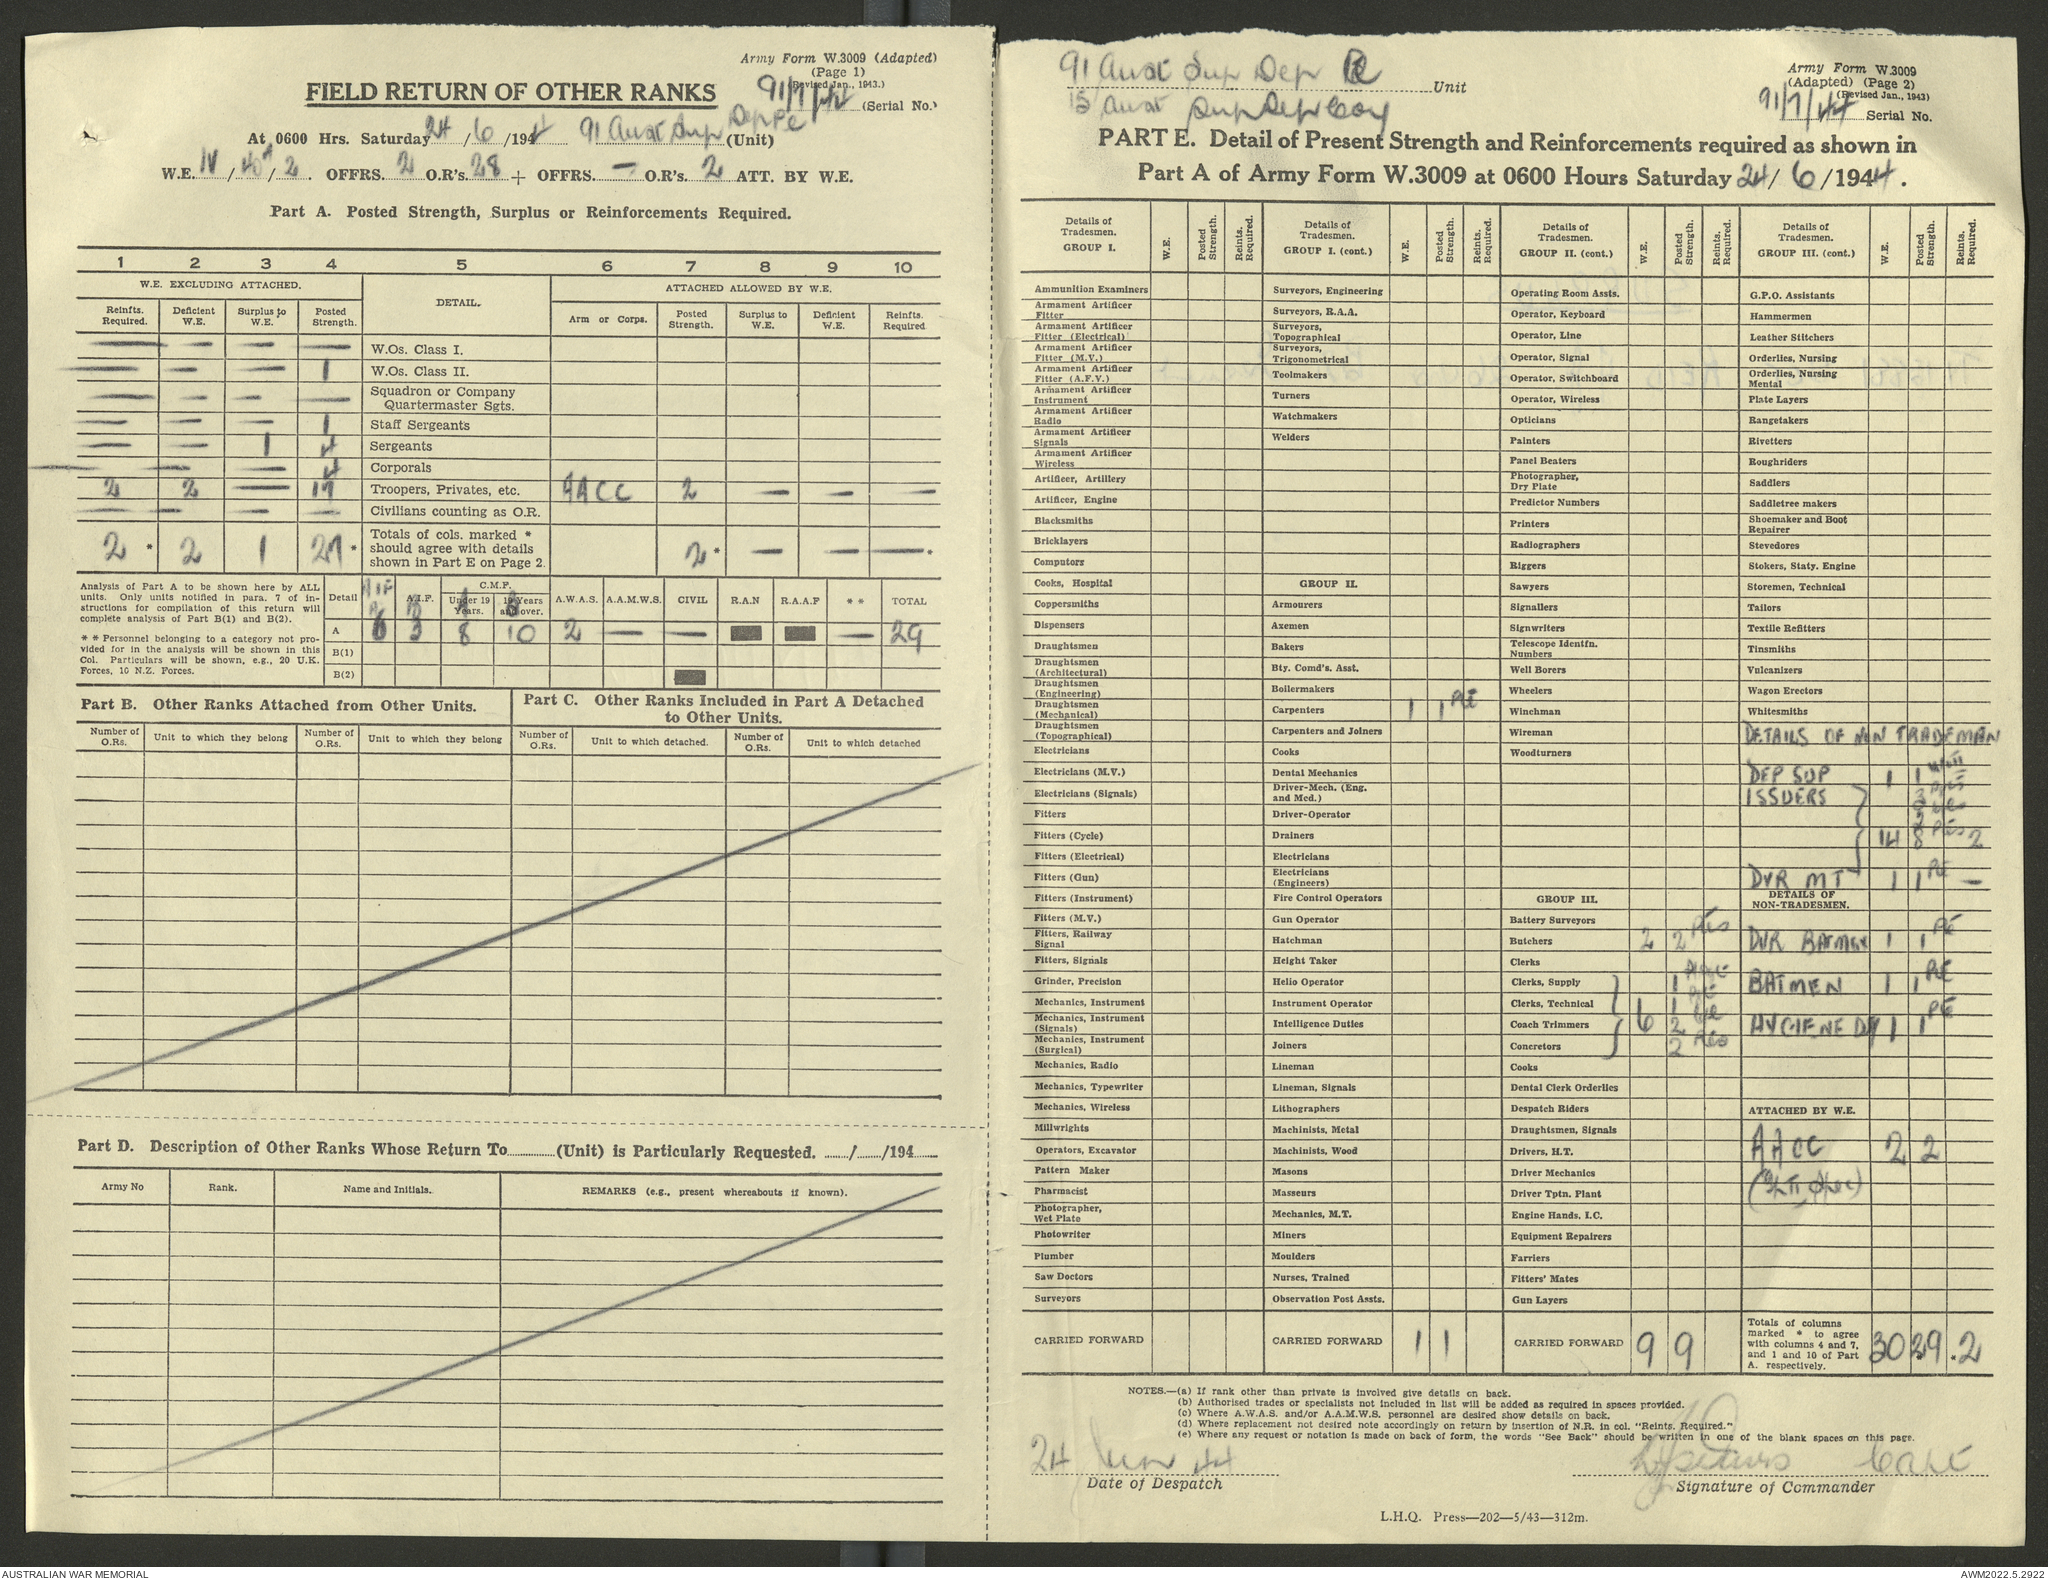 Army Form W.3009 (Adapted)
(Page 1)
(Revised Jan., 1943.)
FIELD RETURN OF OTHER RANKS
91/7/44 (Serial No.)
At 0600 Hrs. Saturday 24/6/1944 91 Aust Sup Dep Pl (Unit)
W.E. IV/40A/2. OFFRS. 2 O.R's. 28 + OFFRS. — O.R's. 2 ATT. BY W.E.
Part A. Posted Strength, Surplus or Reinforcements Required.
1 2 3 4 5 6 7 8 9 10
W.E. EXCLUDING ATTACHED. DETAIL. ATTACHED ALLOWED BY W.E.
Reinfts. Required. Deficient W.E. Surplus to W.E. Posted Strength. Arm or Corps. Posted Strength. Surplus to W.E. Deficient W.E. Reinfts. Required
— — — — W.Os. Class I.
— — — 1 W.Os. Class II.
— — — — Squadron or Company Quartermaster Sgts.
— — — 1 Staff Sergeants
— — 1 4 Sergeants
— — — 4 Corporals
2 2 — 17 Troopers, Privates, etc. AACC 2 — — —
— — — — Civilians counting as O.R.
2 * 2 1 27 * Totals of cols. marked * should agree with details shown in Part E on Page 2. 2 * — — — .
Analysis of Part A to be shown here by ALL units. Only units notified in para. 7 of instructions for compilation of this return will complete analysis of Part B(1) and B(2).
* * Personnel belonging to a category not provided for in the analysis will be shown in this Col. Particulars will be shown, e.g., 20 U.K. Forces, 10 N.Z. Forces.
Detail AIF A.I.F. C.M.F. Under 19 Years. 19 Years and over. A.W.A.S. A.A.M.W.S. CIVIL R.A.N R.A.A.F * * TOTAL
A 6 3 8 10 2 — — — 29
B(1)
B(2)
Part B. Other Ranks Attached from Other Units.
Part C. Other Ranks Included in Part A Detached to Other Units.
Number of O.Rs. Unit to which they belong Number of O.Rs. Unit to which they belong Number of O.Rs. Unit to which detached. Number of O.Rs. Unit to which detached
Part D. Description of Other Ranks Whose Return To (Unit) is Particularly Requested. / /194
Army No Rank. Name and Initials. REMARKS (e.g., present whereabouts if known).
91 Aust Sup Dep Pl Unit
15 Aust Sup Dep Coy
Army Form W.3009
(Adapted) (Page 2)
(Revised Jan., 1943)
91/7/44 Serial No.
PART E. Detail of Present Strength and Reinforcements required as shown in
Part A of Army Form W.3009 at 0600 Hours Saturday 24/6/1944.
Details of Tradesmen. GROUP I. W.E. Posted Strength. Reints. Required.
Ammunition Examiners
Armament Artificer Fitter
Armament Artificer Fitter (Electrical)
Armament Artificer Fitter (M.V.)
Armament Artificer Fitter (A.F.V.)
Armament Artificer Instrument
Armament Artificer Radio
Armament Artificer Signals
Armament Artificer Wireless
Artificer, Artillery
Artificer, Engine
Blacksmiths
Bricklayers
Computors
Cooks, Hospital
Coppersmiths
Dispensers
Draughtsmen
Draughtsmen (Architectural)
Draughtsmen (Engineering)
Draughtsmen (Mechanical)
Draughtsmen (Topographical)
Electricians
Electricians (M.V.)
Electricians (Signals)
Fitters
Fitters (Cycle)
Fitters (Electrical)
Fitters (Gun)
Fitters (Instrument)
Fitters (M.V.)
Fitters, Railway Signal
Fitters, Signals
Grinder, Precision
Mechanics, Instrument
Mechanics, Instrument (Signals)
Mechanics, Instrument (Surgical)
Mechanics, Radio
Mechanics, Typewriter
Mechanics, Wireless
Millwrights
Operators, Excavator
Pattern Maker
Pharmacist
Photographer, Wet Plate
Photowriter
Plumber
Saw Doctors
Surveyors
CARRIED FORWARD
Details of Tradesmen. GROUP I. (cont.) W.E. Posted Strength. Reints. Required.
Surveyors, Engineering
Surveyors, R.A.A.
Surveyors, Topographical
Surveyors, Trigonometrical
Toolmakers
Turners
Watchmakers
Welders
GROUP II.
Armourers
Axemen
Bakers
Bty. Comd's. Asst.
Boilermakers
Carpenters 1 1 Pte
Carpenters and Joiners
Cooks
Dental Mechanics
Driver-Mech. (Eng. and Med.)
Driver-Operator
Drainers
Electricians
Electricians (Engineers)
Fire Control Operators
Gun Operator
Hatchman
Height Taker
Helio Operator
Instrument Operator
Intelligence Duties
Joiners
Lineman
Lineman, Signals
Lithographers
Machinists, Metal
Machinists, Wood
Masons
Masseurs
Mechanics, M.T.
Miners
Moulders
Nurses, Trained
Observation Post Assts.
CARRIED FORWARD 1 1
Details of Tradesmen. GROUP II. (cont.) W.E. Posted Strength. Reints. Required.
Operating Room Assts.
Operator, Keyboard
Operator, Line
Operator, Signal
Operator, Switchboard
Operator, Wireless
Opticians
Painters
Panel Beaters
Photographer, Dry Plate
Predictor Numbers
Printers
Radiographers
Riggers
Sawyers
Signallers
Signwriters
Telescope Identfn. Numbers
Well Borers
Wheelers
Winchman
Wireman
Woodturners
GROUP III.
Battery Surveyors
Butchers 2 2 Ptes
Clerks
Clerks, Supply 1
Clerks, Technical 1
Coach Trimmers 6 2
Concretors 2 Ptes
Cooks
Dental Clerk Orderlies
Despatch Riders
Draughtsmen, Signals
Drivers, H.T.
Driver Mechanics
Driver Tptn. Plant
Engine Hands, I.C.
Equipment Repairers
Farriers
Fitters' Mates
Gun Layers
CARRIED FORWARD 9 9
Details of Tradesmen. GROUP III. (cont.) W.E. Posted Strength. Reints. Required.
G.P.O. Assistants
Hammermen
Leather Stitchers
Orderlies, Nursing
Orderlies, Nursing Mental
Plate Layers
Rangetakers
Rivetters
Roughriders
Saddlers
Saddletree makers
Shoemaker and Boot Repairer
Stevedores
Stokers, Staty. Engine
Storemen, Technical
Tailors
Textile Refitters
Tinsmiths
Vulcanizers
Wagon Erectors
Whitesmiths
DETAILS OF NON TRADEMAN
DEP SUP 1 1
ISSUERS 3
14 8 Ptes 2
DVR MT 1 1 Pte —
DETAILS OF NON-TRADESMEN.
DVR BATMAN 1 1 Pte
BATMEN 1 1 Pte
HYGIENE DY 1 1 Pte
ATTACHED BY W.E.
AACC 2 2
Totals of columns marked * to agree with columns 4 and 7, and 1 and 10 of Part A. respectively. 30 29 .2
NOTES.—(a) If rank other than private is involved give details on back.
(b) Authorised trades or specialists not included in list will be added as required in spaces provided.
(c) Where A.W.A.S. and/or A.A.M.W.S. personnel are desired show details on back.
(d) Where replacement not desired note accordingly on return by insertion of N.R. in col. "Reints. Required."
(e) Where any request or notation is made on back of form, the words "See Back" should be written in one of the blank spaces on this page.
24 Jun 44 Capt
Date of Despatch Signature of Commander
L.H.Q. Press—202—5/43—312m.
AUSTRALIAN WAR MEMORIAL AWM2022.5.2922